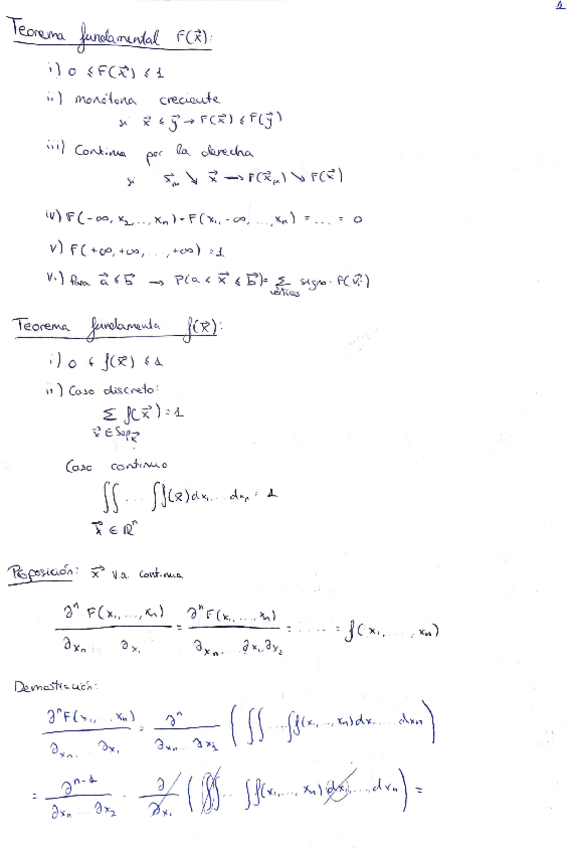 1
Teorema fundamental F(x⃗):
i) 0 ≤ F(x⃗) ≤ 1
ii) monótona creciente
si x⃗ ≤ y⃗ → F(x⃗) ≤ F(y⃗)
iii) Continua por la derecha
si x⃗ₘ ↘ x⃗ → F(x⃗ₘ) ↘ F(x⃗)
iv) F(-∞, x₂, ..., xₙ) = F(x₁, -∞, ..., xₙ) = .... = 0
v) F(+∞, +∞, ..., +∞) = 1
v.) Para a⃗ ≤ b⃗ → P(a < x⃗ ≤ b⃗) = Σ signo · F(v⃗ᵢ)
vértices
Teorema fundamenta f(x⃗):
i) 0 ≤ f(x⃗) ≤ 1
ii) Caso discreto:
Σ f(x⃗) = 1
x⃗ ∈ Sop x⃗
Caso continuo
∬ ... ∫ f(x⃗) dx₁ ... dxₙ = 1
x⃗ ∈ ℝⁿ
Proposición: x⃗ v.a. continua
∂ⁿ F(x₁, ..., xₙ) / ∂xₙ ... ∂x₁ = ∂ⁿ F(x₁, ..., xₙ) / ∂xₙ ... ∂x₁ ∂x₂ = ...... = f(x₁, ..., xₙ)
Demostración:
∂ⁿ F(x₁, ... xₙ) / ∂xₙ ... ∂x₁ = ∂ⁿ / ∂xₙ ... ∂x₁ (∬ ... ∫ f(x₁, ..., xₙ) dx₁ ... dxₙ)
= ∂ⁿ⁻¹ / ∂xₙ ... ∂x₂ · ∂ / ∂x₁ (∬ ... ∫ f(x₁, ..., xₙ) dx₁ ... dxₙ) =